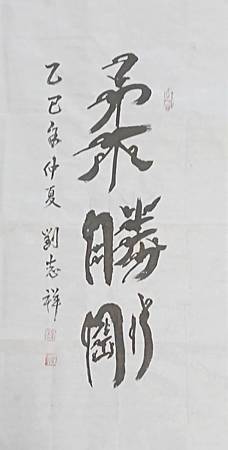 柔勝剛
乙巳年仲夏 劉志祥